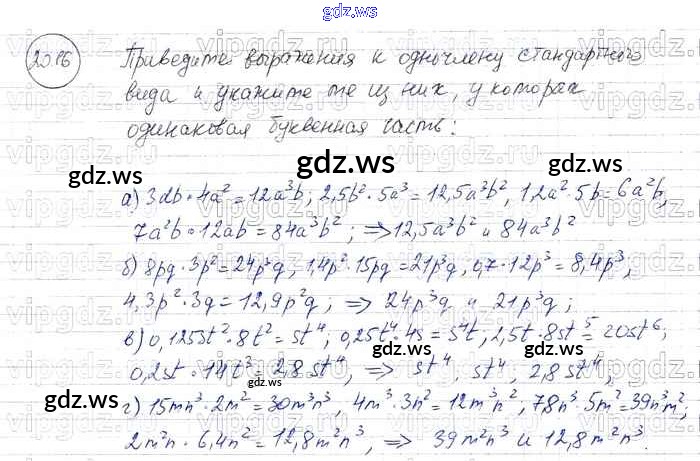 gdz.ws
20.16
Приведите выражения к одночлену стандартного
вида и укажите те из них, у которых
одинаковая буквенная часть:
gdz.ws
gdz.ws
а) 3ab·4a²=12a³b; 2,5b²·5a³=12,5a³b², 1,2a²·5b=6a²b,
7a²b·12ab=84a³b²; ⇒12,5a³b² и 84a³b²
б) 8pq·3p²=24p³q, 1,4p²·15pq=21p³q, 0,7·12p³=8,4p³;
4,3p²·3q=12,9p²q; ⇒ 24p³q и 21p³q;
в) 0,125st²·8t²=st⁴; 0,25t⁴·4s=s⁴t; 2,5t·8st⁵=20st⁶;
gdz.ws
0,2st·14t³=2,8st⁴, ⇒ st⁴, st⁴, 2,8st⁴,
gdz.ws
г) 15mn³·2m²=30m³n³, 4m³·3n²=12m³n², 7,8n³·5m²=39n³m²,
2m²n·6,4n²=12,8m²n³, ⇒ 39m²n³ и 12,8m²n³.
gdz.ws